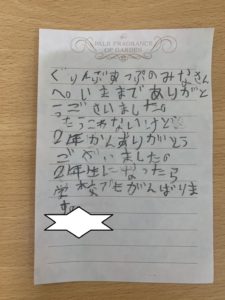 PALE FRAGRANCE
OF GARDEN
ぐりんぷすっぷのみなさん
へ。いままでありがと
うございました。
もうこれないけど
2年かんありがとう
ございました。
2年生になったら
学校でもがんばりま
す。